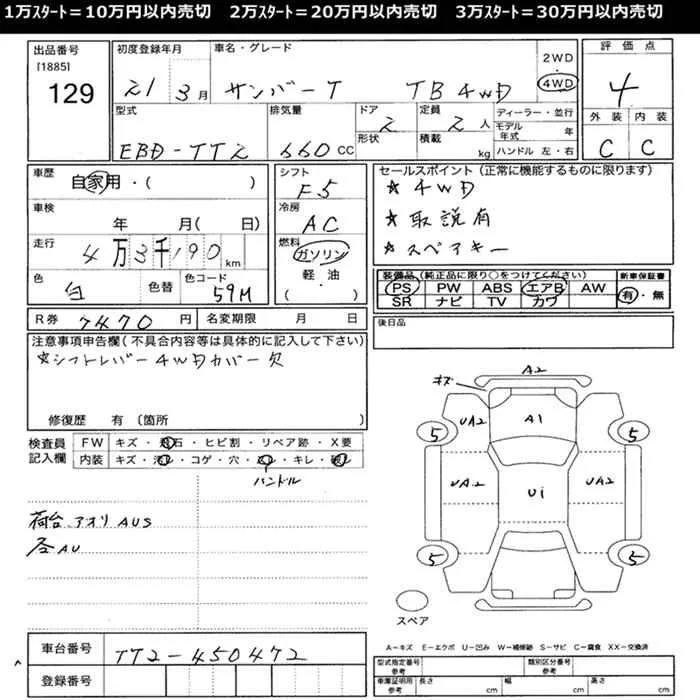 1万ｽﾀｰﾄ＝10万円以内売切　2万ｽﾀｰﾄ＝20万円以内売切　3万ｽﾀｰﾄ＝30万円以内売切
出品番号
[1885]
129
初度登録年月
21 3月
車名・グレード
サンバーT TB 4WD
2WD
・
4WD
評価点
4
外装 内装
C C
型式
EBD-TT2
排気量
660 CC
ドア
2
形状
定員
2人
積載
kg
ディーラー・並行
モデル年式 年
ハンドル 左・右
車歴
自家用・( )
車検
年 月( 日)
走行
4万3千190 km
色
白
色替
色コード
59M
シフト
F5
冷房
AC
燃料
ガソリン
軽・油
( )
セールスポイント(正常に機能するものに限ります)
★ 4WD
★ 取説有
★ スペアキー
装備品(純正品に限り○をつけてください)
PS PW ABS エアB AW
SR ナビ TV カワ
新車保証書
有・無
R券 7470 円 名変期限 月 日
後日品
注意事項申告欄(不具合内容等は具体的に記入して下さい)
★シフトレバー4WDカバー欠
修復歴 有 〔箇所 〕
検査員記入欄
FW キズ・飛石・ヒビ割・リペア跡・X要
内装 キズ・汚レ・コゲ・穴・スレ・キレ・破レ
ハンドル
荷台 アオリ AUS
各AU
A2
キズ
UA2
A1
UA2
5
5
UA2
Ui
UA2
5
5
スペア
A－キズ E－エクボ U－凹み W－補修跡 S－サビ C－腐食 XX－交換済
車台番号 TT2-450472
登録番号
型式指定番号 参考
類別区分番号 参考
車庫証明用 参考
長さ cm
幅 cm
高さ cm